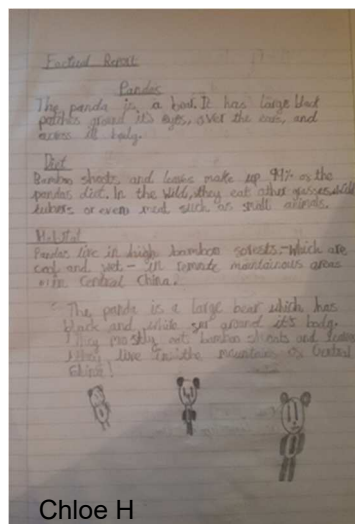 Factual Report
Pandas
The panda is a bear. It has large black
patches around it's eyes, over the ears, and
across it body.
Diet
Bamboo shoots and leaves make up 99% of the
pandas diet. In the wild, they eat other grasses, wild
tubers or even meat such as small animals.
Habitat
Pandas live in high bamboo forests - which are
cool and wet - in remote mountainous areas
in Central China.
The panda is a large bear which has
black and white fur around it's body.
They mostly eat bamboo shoots and leaves
They live in the mountains of Central
China!
Chloe H